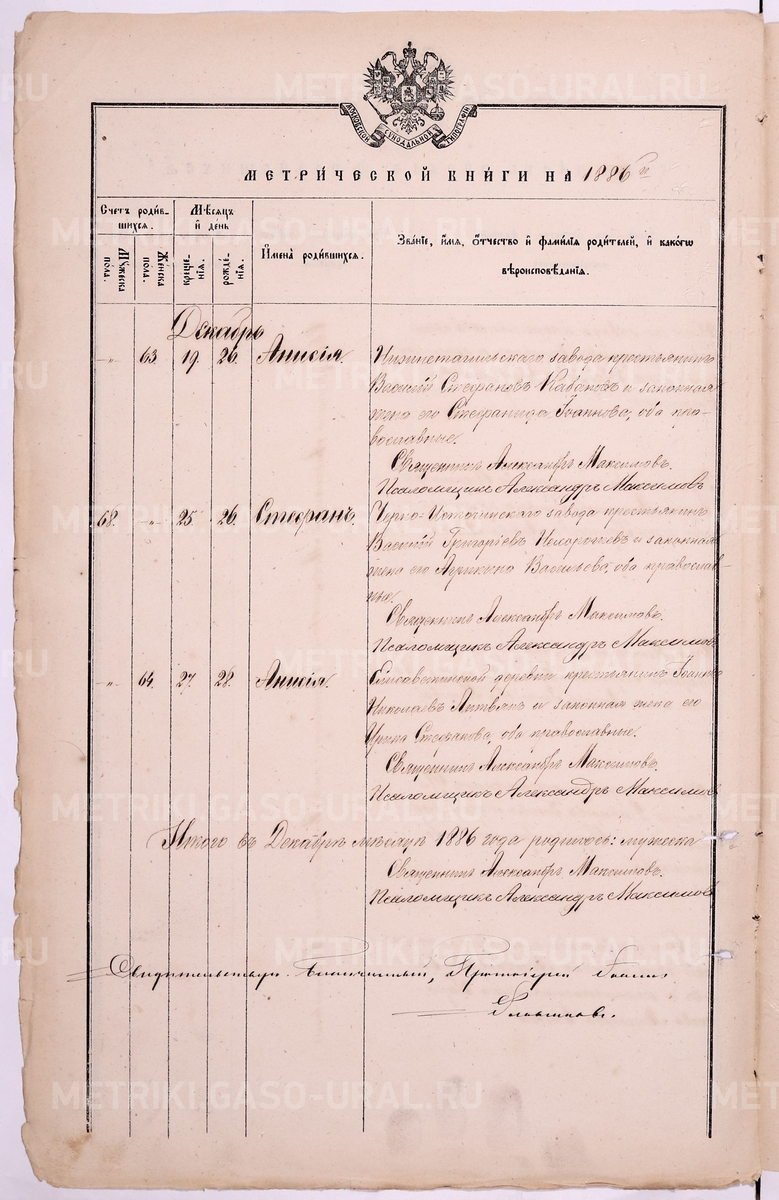 МОСКОВСКОЙ СѴНОДАЛЬНОЙ ТИПОГРАФІИ
МЕТРИ́ЧЕСКОЙ КНИ́ГИ НА 1886 й
Счетъ роди́вшихся.
Мѣсяцъ и день
Имена̀ роди́вшихся.
Зва́ніе, и́мя, о́тчество и фами́лія роди́телей, и како́гѡ вѣроисповѣ́данія.
Му́жеска пола.
Же́нска пола.
креще́нія.
рожде́нія.
Декабрь
„ 63. 19. 26. Анисія. Нижнетагильскаго завода крестьянинъ
Василій Стефановъ Кабановъ и законная
жена его Стефанида Іоаннова, оба пра-
вославные.
Священникъ Александръ Максимовъ.
Псаломщикъ Александръ Максимовъ
68. „ 25. 26. Стефанъ. Черно-Источинскаго завода крестьянинъ
Василій Григоріевъ и законная
жена его Васильева, оба православ-
ные.
Священникъ Александръ Максимовъ.
Псаломщикъ Александръ Максимовъ
„ 64. 27. 28. Анисія. Елисаветинской деревни крестьянинъ Іоаннъ
Николаевъ и законная жена его
Ирина Стефанова, оба православные.
Священникъ Александръ Максимовъ.
Псаломщикъ Александръ Максимовъ
Итого въ Декабрѣ мѣсяцѣ 1886 года родилось: мужеска
Священникъ Александръ Максимовъ.
Псаломщикъ Александръ Максимовъ
Свидѣтельствую Благочинный, Протоіерей Іоаннъ
METRIKI.GASO-URAL.RU